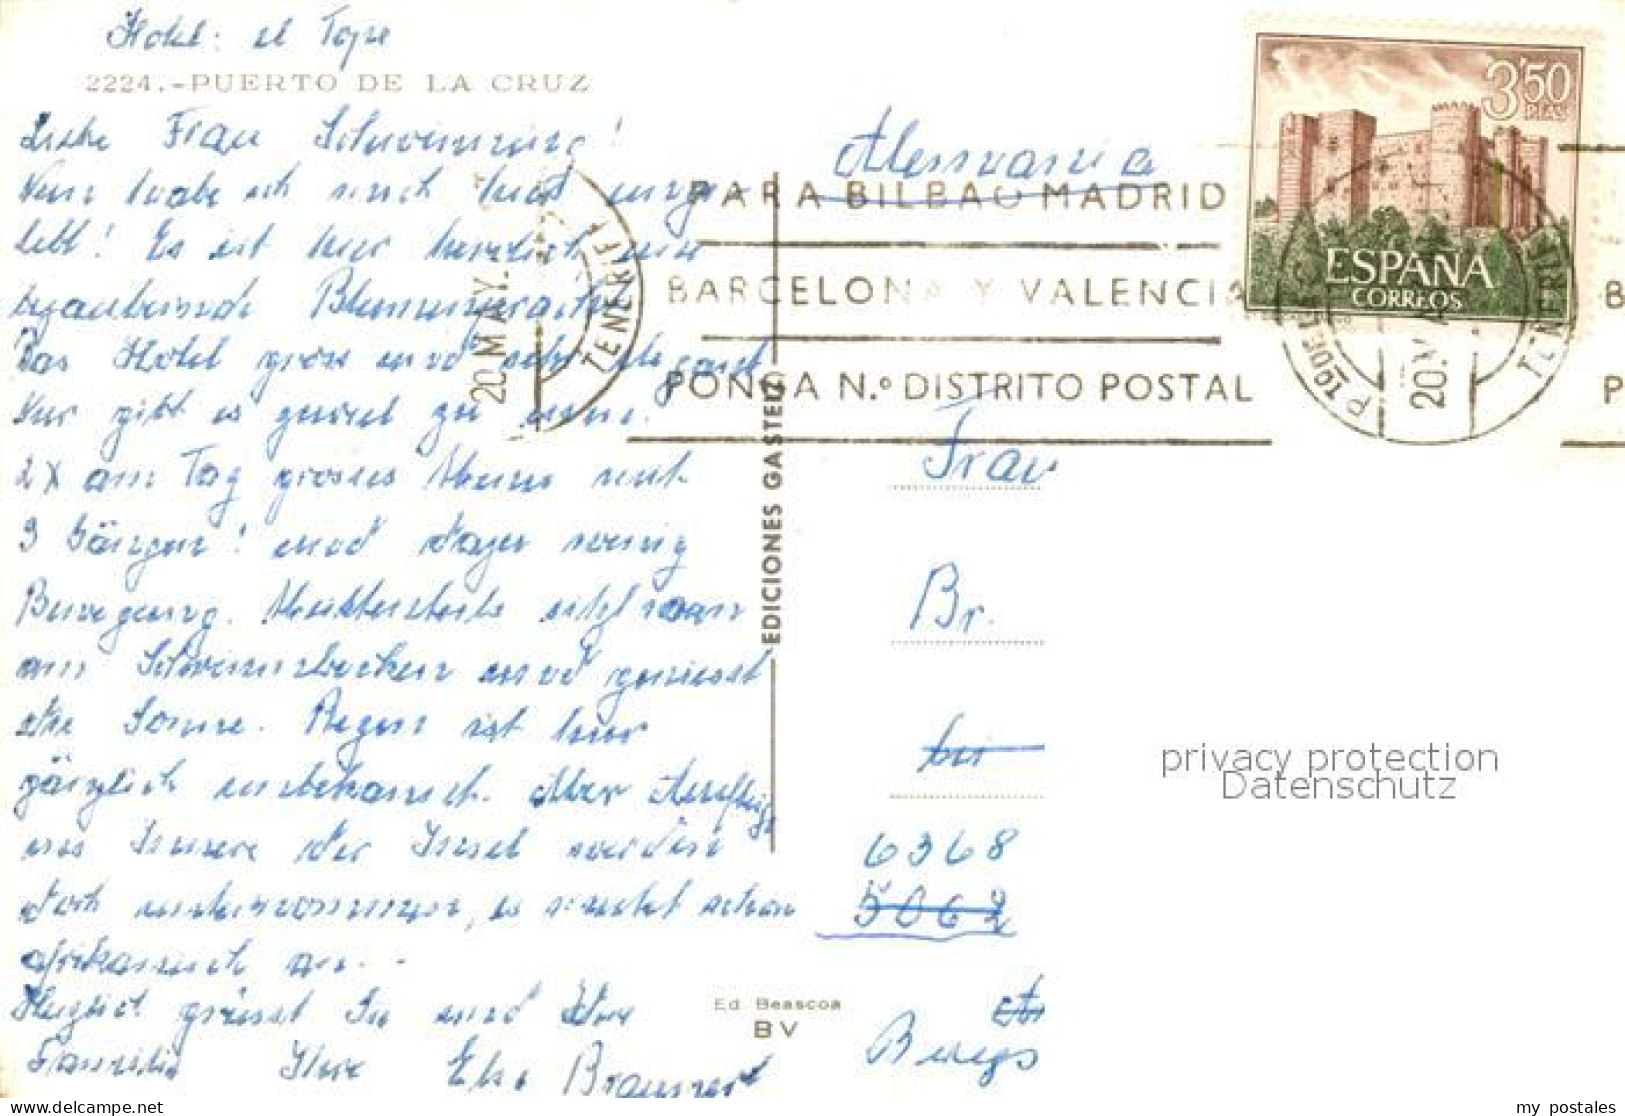 Hotel: el Tope
2224.-PUERTO DE LA CRUZ
Liebe Frau Schwenning!
Nun habe ich mich hier einge-
lebt! Es ist hier herrlich, eine
bezaubernde Blumenpracht.
Das Hotel gross und sehr elegant
Nur gibt es zuviel zu essen.
2 x am Tag grosses Menue mit
3 Gängen! und dazu wenig
Bewegung. Meistenteils sitzt man
am Schwimmbecken und geniesst
die Sonne. Regen ist hier
gänzlich unbekannt. Aber Ausflüge
ins Innere der Insel werden
doch unternommen, es mutet schon
afrikanisch an. -
Herzlich grüsst Sie und Ihre
Familie Ihre Else
Alemania
PARA BILBAO MADRID
BARCELONA Y VALENCIA
PONGA N.º DISTRITO POSTAL
20 MAY.
TENERIFE
3'50
PTAS
ESPAÑA
CORREOS
EDICIONES GASTEIZ
Frau
Br.
bei
6368
5062
Ed. Beascoa
BV
privacy protection
Datenschutz
my postales